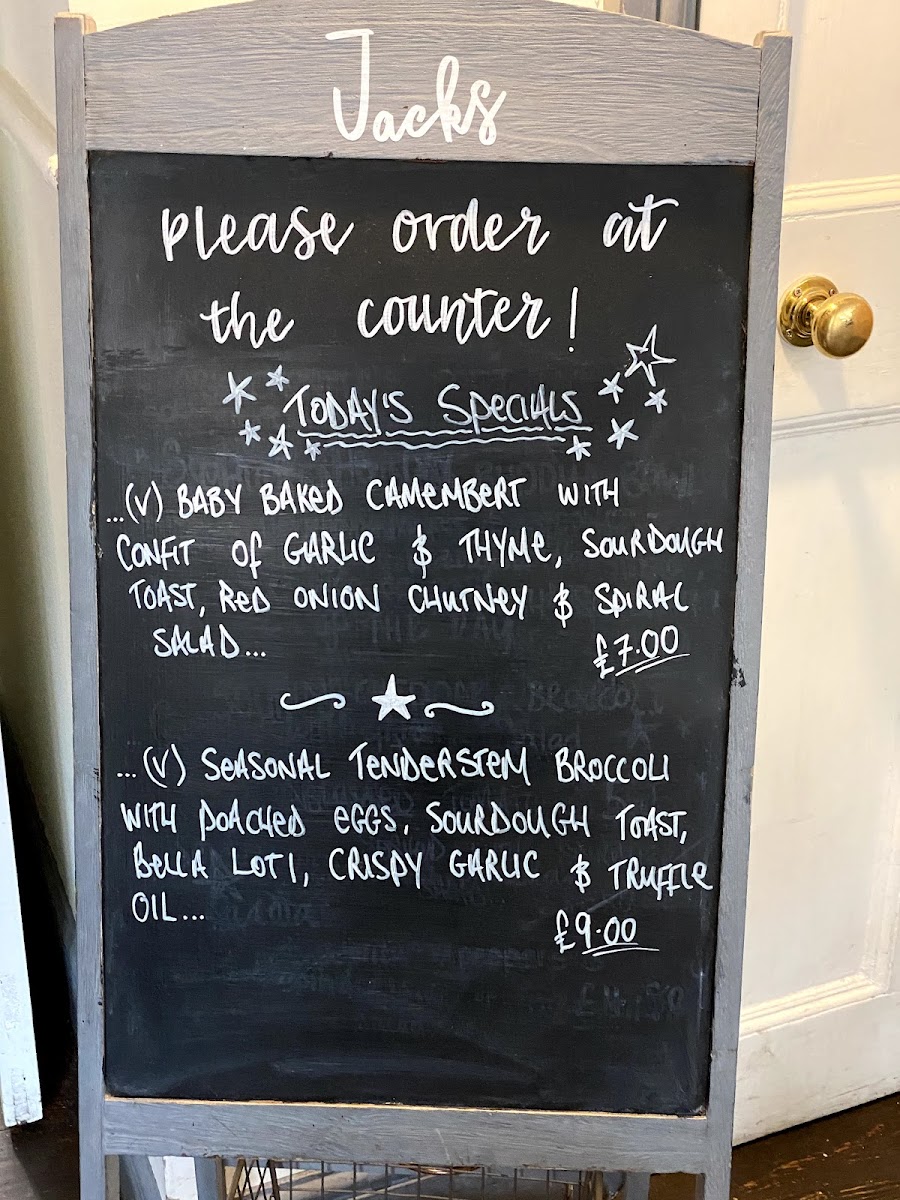 Jacks
please order at
the counter!
TODAY'S SPECIALS
...(V) BABY BAKED CAMEMBERT WITH
CONFIT OF GARLIC & THYME, SOURDOUGH
TOAST, RED ONION CHUTNEY & SPIRAL
SALAD...
£7.00
...(V) SEASONAL TENDERSTEM BROCCOLI
WITH POACHED EGGS, SOURDOUGH TOAST,
BELLA LOTI, CRISPY GARLIC & TRUFFLE
OIL...
£9.00